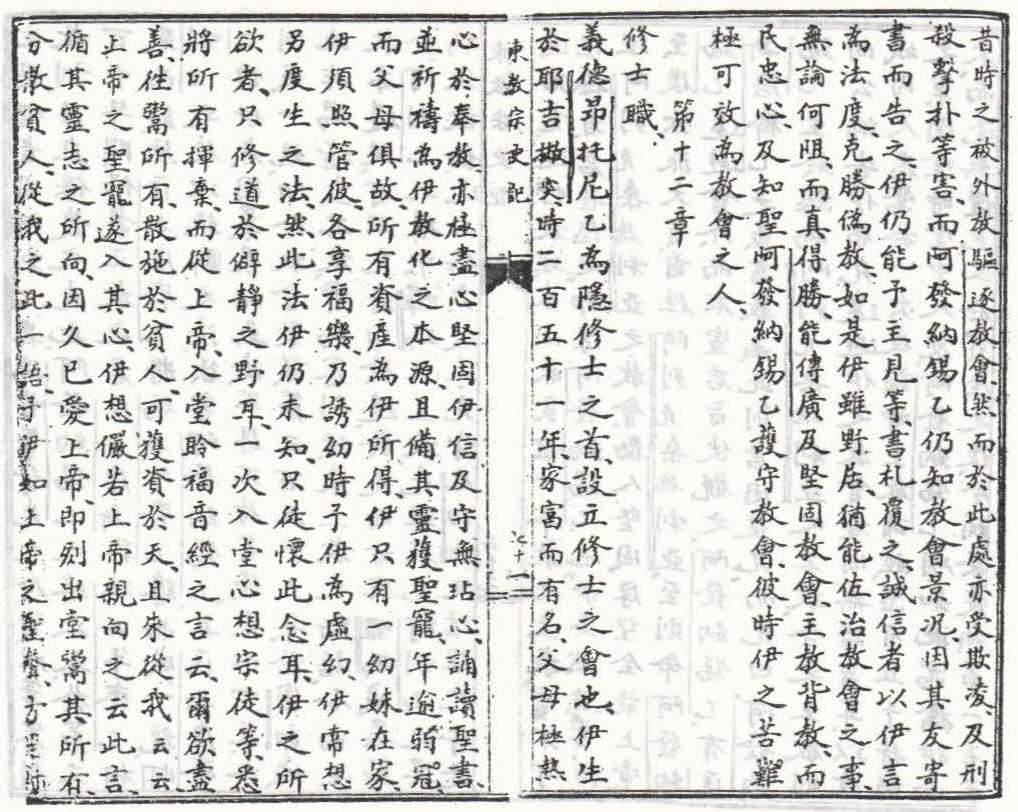 昔時之被外教驅逐教會、然、而於此處亦受欺凌、及刑
殺、擊扑等害、而阿發納錫乙仍知教會景况、因其友寄
書而告之、伊仍能予主見等書札覆之、誠信者以伊言
為法度、克勝偽教、如是伊雖野居、猶能佐治教會之事、
無論何阻、而真得勝、能傳廣及堅固教會主教背教而
民忠心、及知聖阿發納錫乙護守教會、彼時伊之苦難
極可效為教會之人、
第十二章
修士職、
義德昂托尼乙為隱修士之首、設立修士之會也、伊生
於耶吉撇突時二百五十一年家富而有名、父母極熱
東教宗史記
七十二
心於奉教、亦極盡心堅固伊信及守無玷心、誦讀聖書、
並祈禱為伊教化之本源、且備其靈獲聖寵、年逾弱冠、
而父母俱故、所有資產為伊所得、伊只有一幼妹在家、
伊須照管彼、各享福樂、乃誘幼時子伊為虛幻伊常想
另度生之法、然此法伊仍未知、只徒懷此念耳、伊之所
欲者、只修道於僻靜之野耳、一次入堂心想宗徒等、悉
將所有揮棄、而從上帝、入堂聆福音經之言云、爾欲盡
善、往鬻所有、散施於貧人、可獲資於天、且來從我云云、
上帝之聖寵遂入其心、伊想儼若上帝親向之云此言、
循其靈志之所向、因久已愛上帝、即刻出堂鬻其所有、
分散貧人、從我之此一語、予伊如上帝之聖聲、方